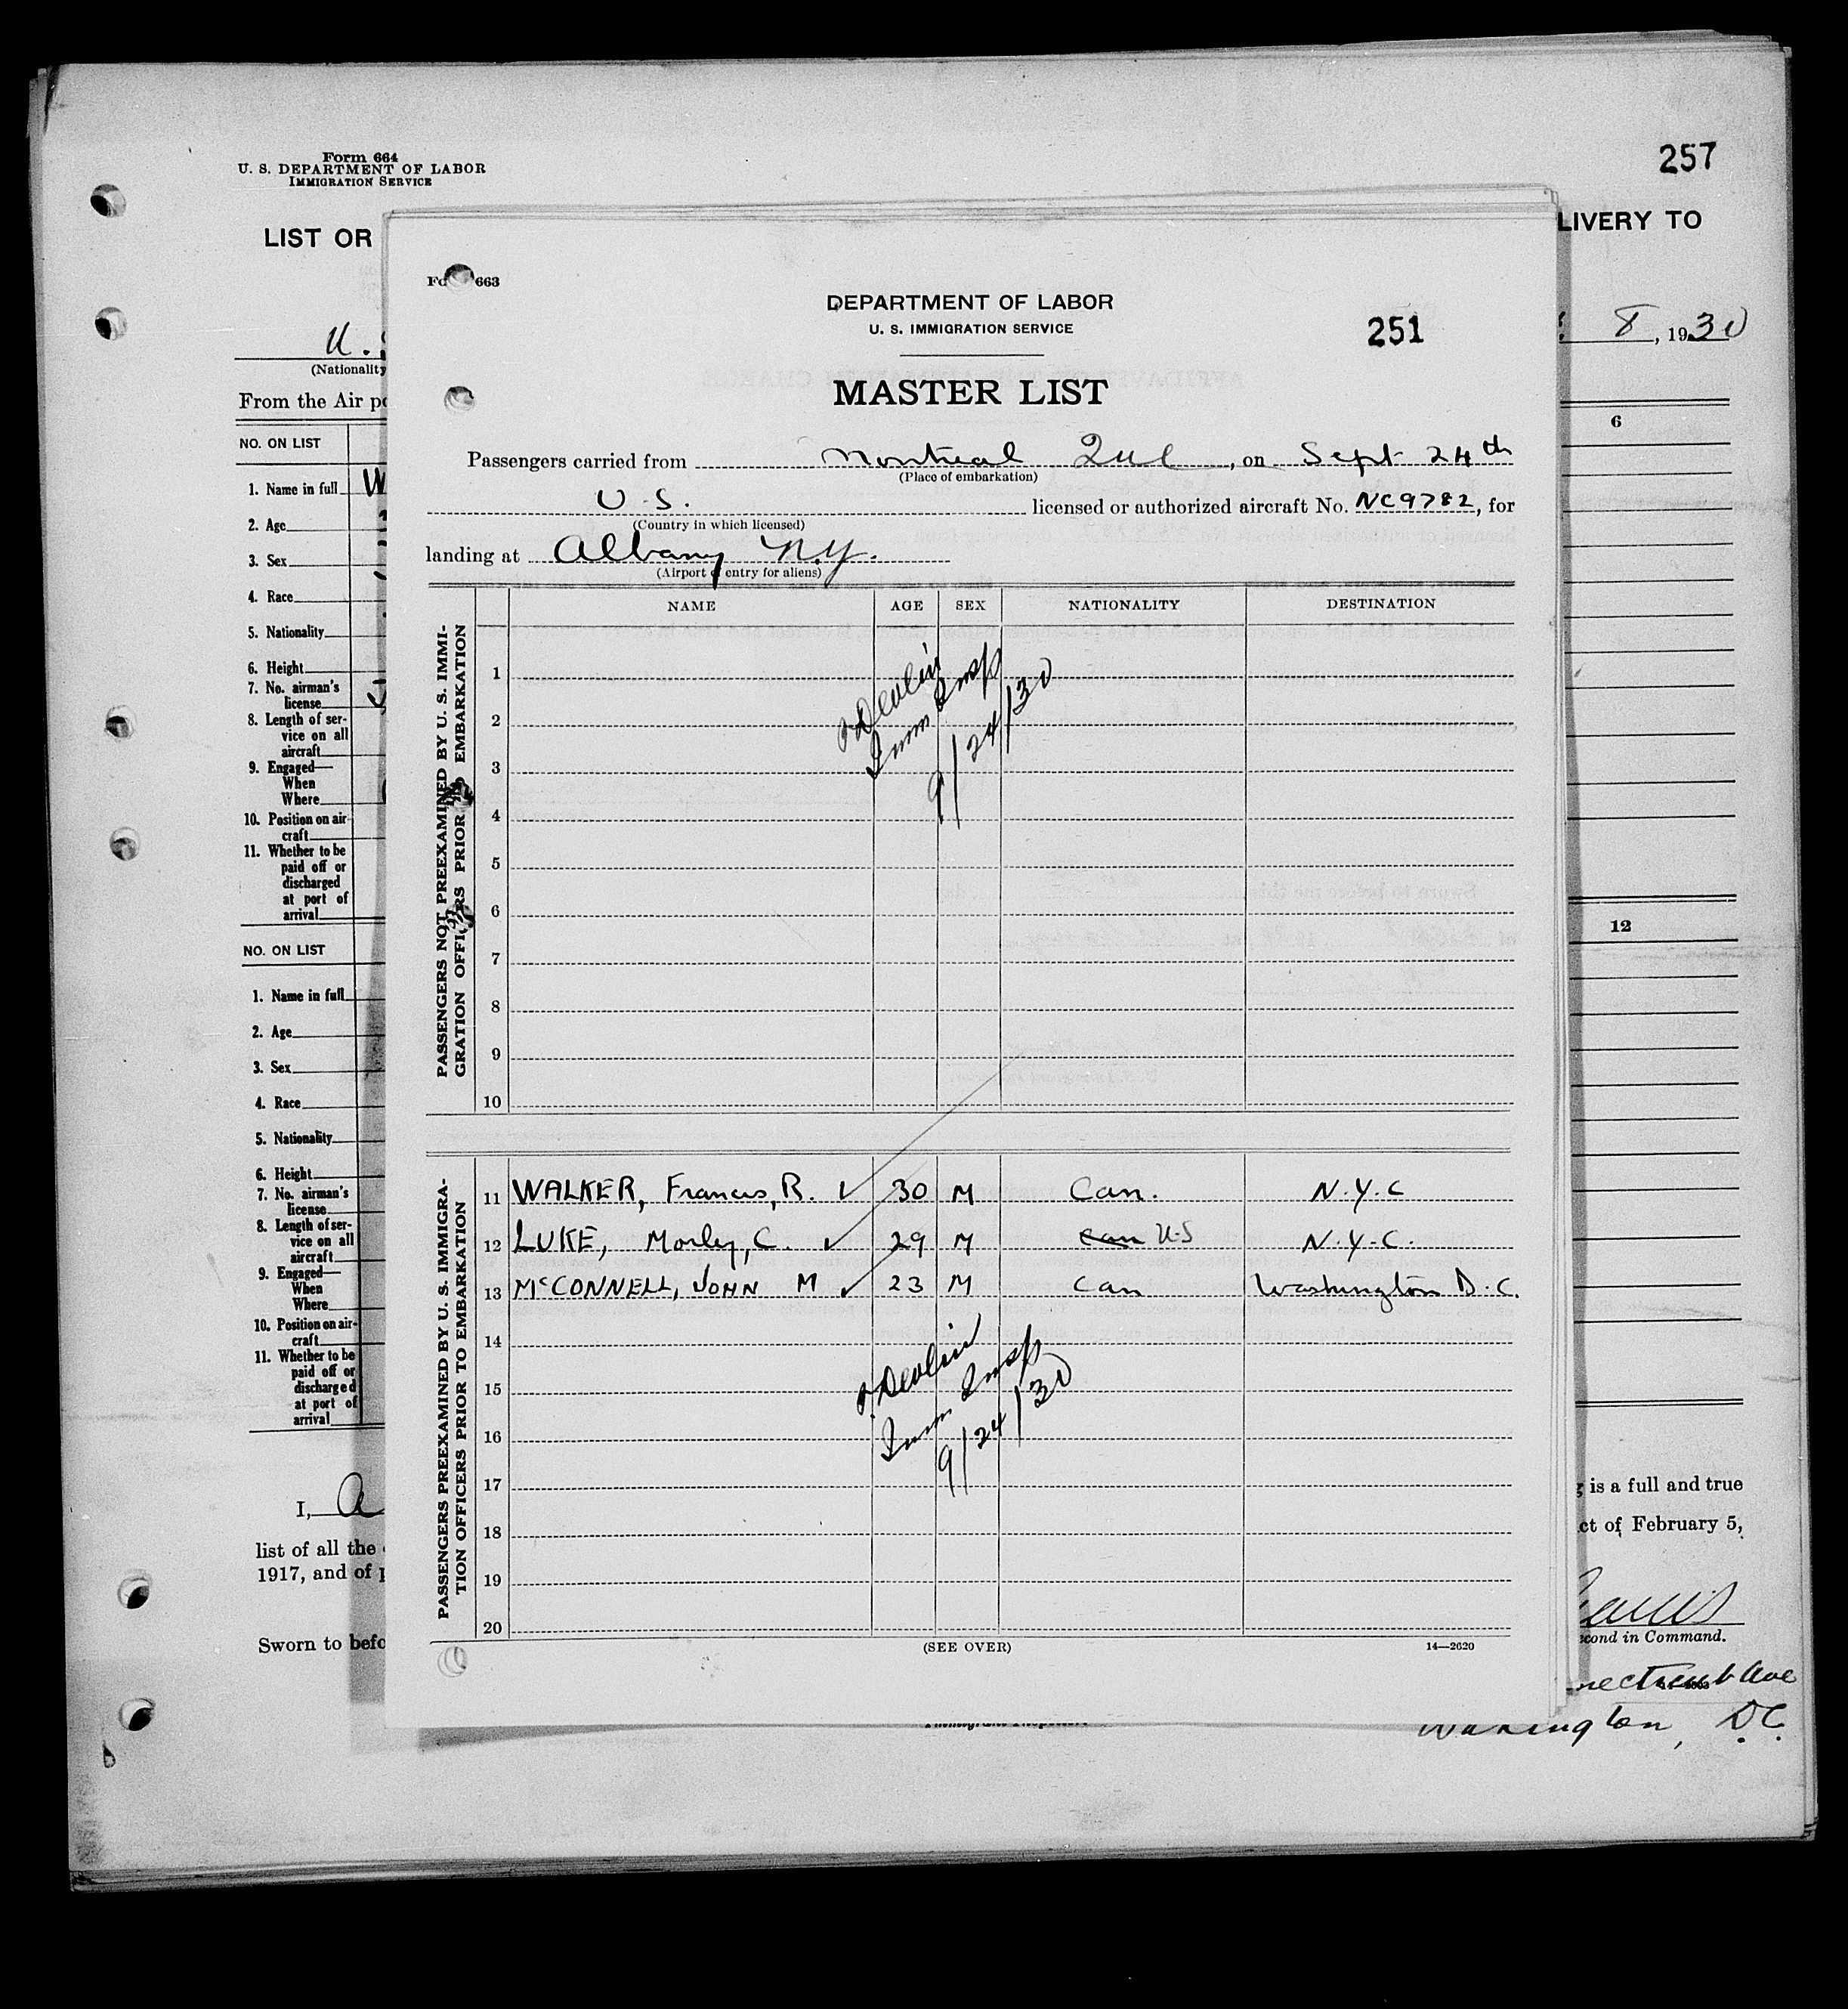 Form 664
U. S. DEPARTMENT OF LABOR
IMMIGRATION SERVICE
257
LIST OR
LIVERY TO
U.
8, 1930
(Nationality
From the Air po
NO. ON LIST
6
1. Name in full
2. Age
3. Sex
4. Race
5. Nationality
6. Height
7. No. airman's
license
8. Length of ser-
vice on all
aircraft
9. Engaged—
When
Where
10. Position on air-
craft
11. Whether to be
paid off or
discharged
at port of
arrival
NO. ON LIST
12
1. Name in full
2. Age
3. Sex
4. Race
5. Nationality
6. Height
7. No. airman's
license
8. Length of ser-
vice on all
aircraft
9. Engaged—
When
Where
10. Position on air-
craft
11. Whether to be
paid off or
discharged
at port of
arrival
I, a
is a full and true
list of all the
ct of February 5,
1917, and of p
Sworn to befo
cond in Command.
necticut Ave
Washington, D.C.
663
DEPARTMENT OF LABOR
U. S. IMMIGRATION SERVICE
251
MASTER LIST
Passengers carried from Montreal Que, on Sept 24th
(Place of embarkation)
U.S. licensed or authorized aircraft No. NC9782, for
(Country in which licensed)
landing at Albany N.Y.
(Airport of entry for aliens)
NAME AGE SEX NATIONALITY DESTINATION
PASSENGERS NOT PREEXAMINED BY U. S. IMMI-
GRATION OFFICERS PRIOR TO EMBARKATION
1
2
3
4
5
6
7
8
9
10
Devlin
Imm Insp
9/24/30
PASSENGERS PREEXAMINED BY U. S. IMMIGRA-
TION OFFICERS PRIOR TO EMBARKATION
11 WALKER, Francis, R. ✓ 30 M Can. N.Y.C
12 LUKE, Morley, C. ✓ 29 M Can U.S N.Y.C.
13 McCONNELL, JOHN M ✓ 23 M Can Washington D.C.
14
15
16
17
18
19
20
Devlin
Imm Insp
9/24/30
(SEE OVER)
14—2620